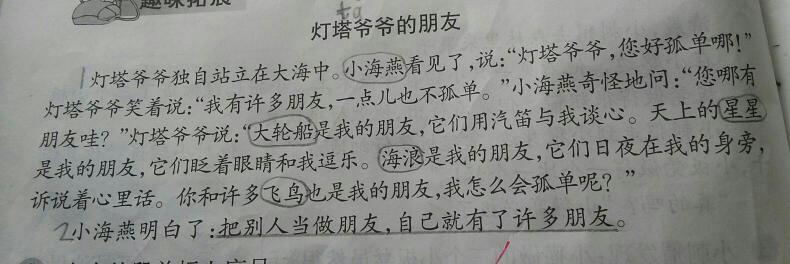 趣味拓展
灯塔爷爷的朋友
1 灯塔爷爷独自站立在大海中。小海燕看见了,说:“灯塔爷爷,您好孤单哪!”
灯塔爷爷笑着说:“我有许多朋友,一点儿也不孤单。”小海燕奇怪地问:“您哪有
朋友哇?”灯塔爷爷说:“大轮船是我的朋友,它们用汽笛与我谈心。天上的星星
是我的朋友,它们眨着眼睛和我逗乐。海浪是我的朋友,它们日夜在我的身旁,
诉说着心里话。你和许多飞鸟也是我的朋友,我怎么会孤单呢?”
2 小海燕明白了:把别人当做朋友,自己就有了许多朋友。